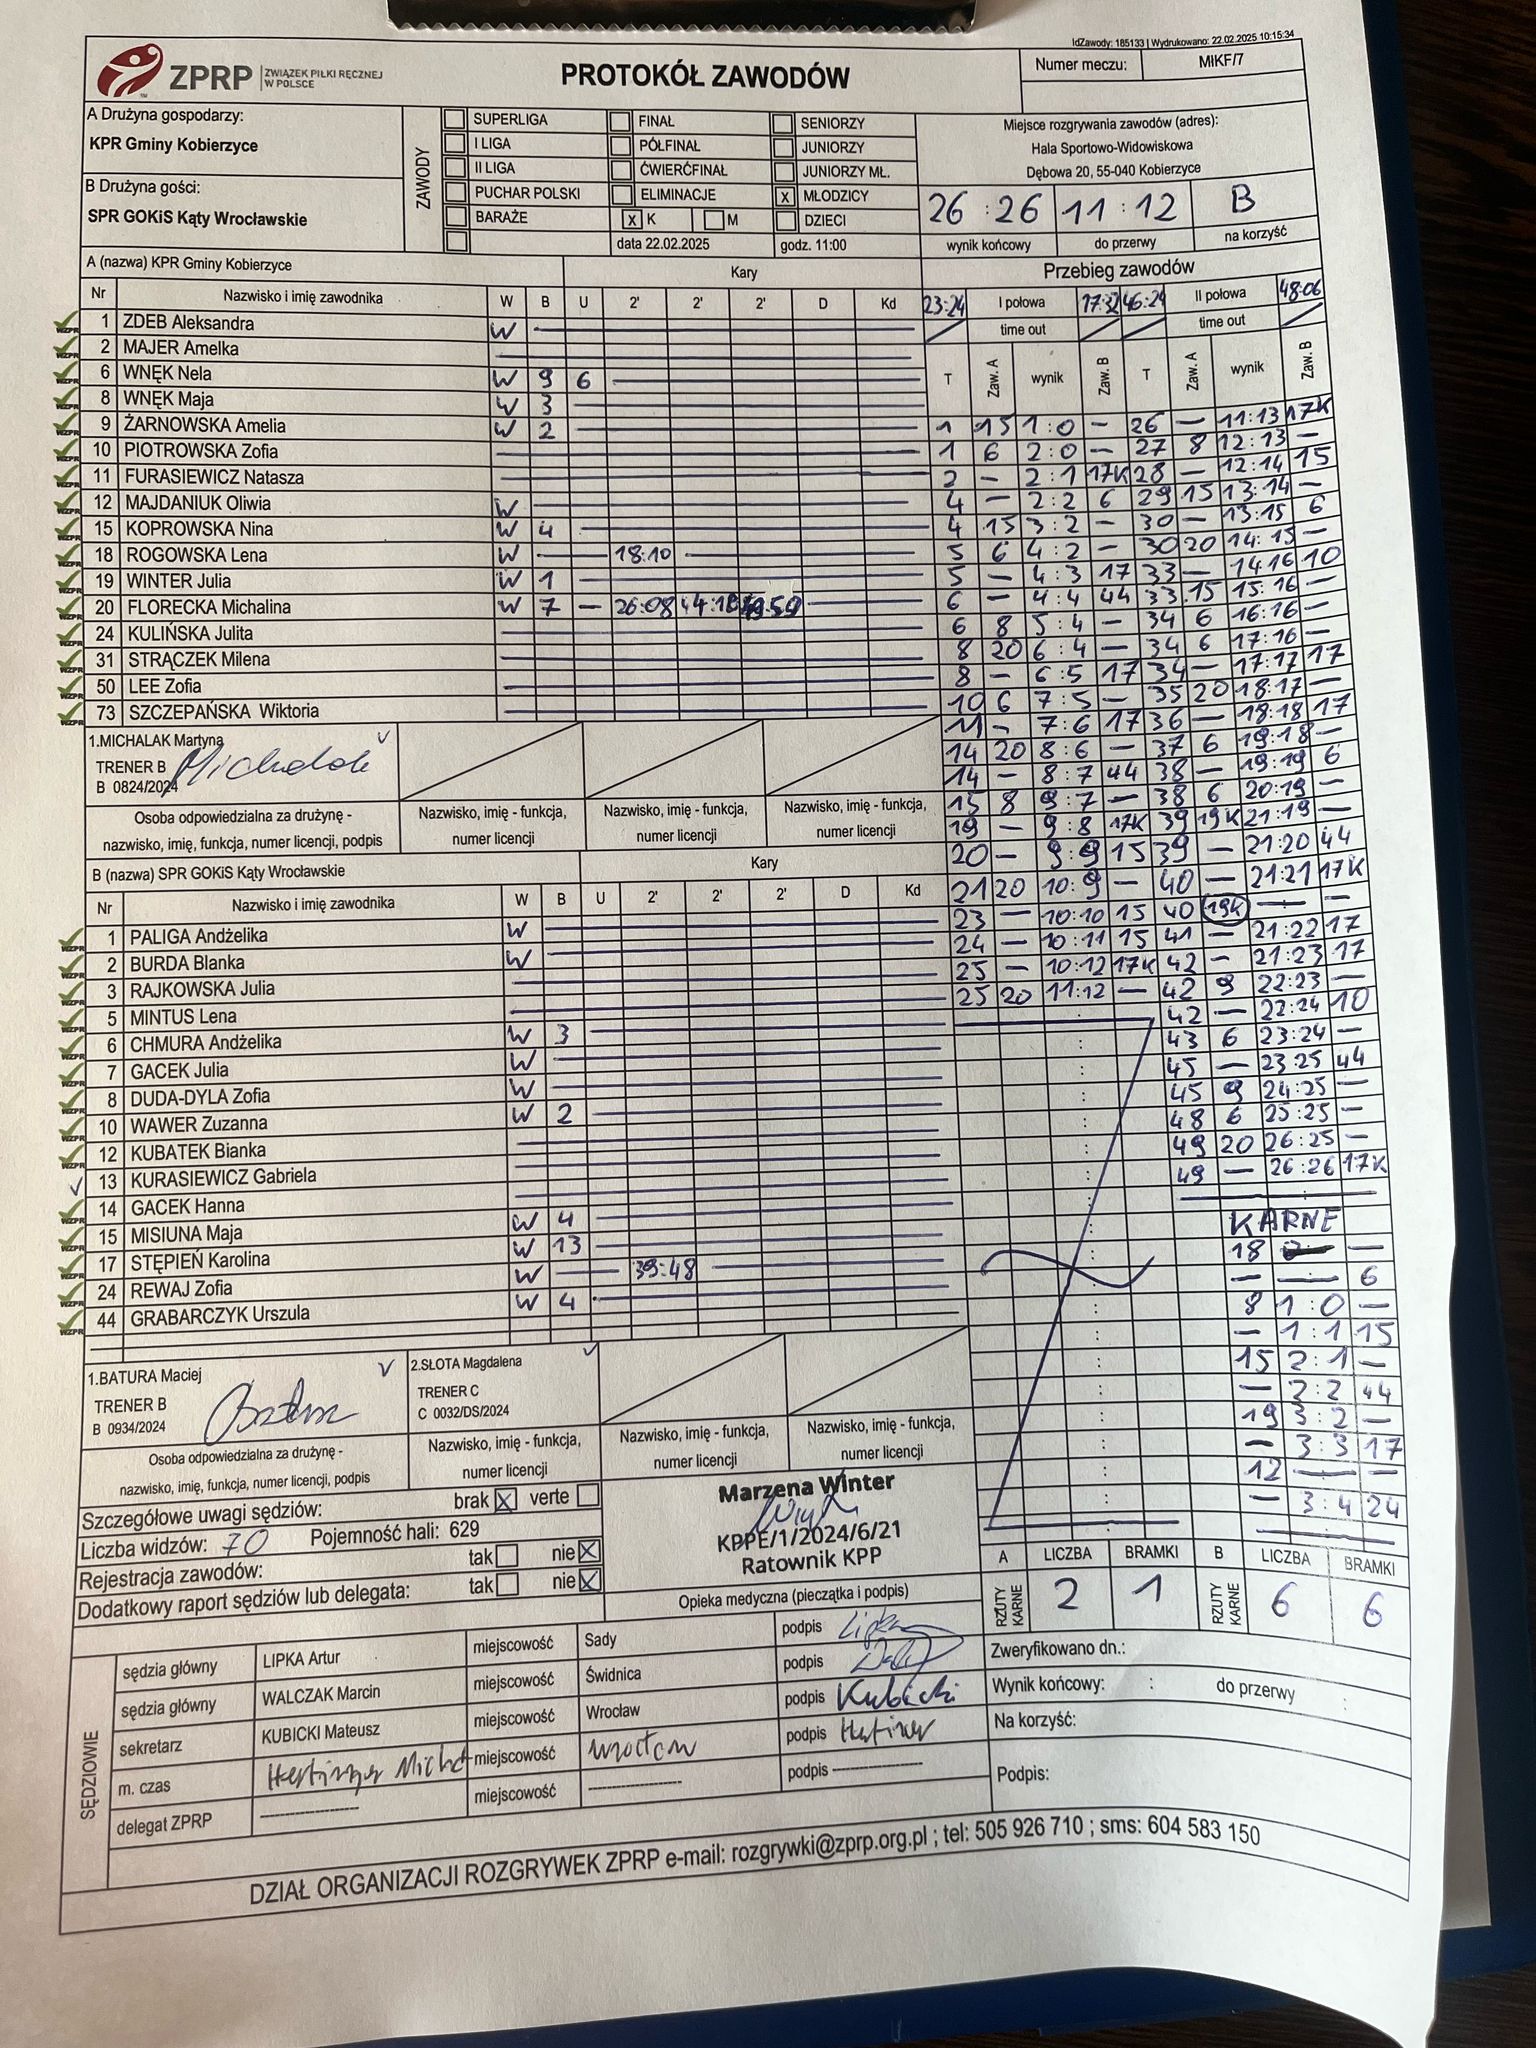 IdZawody: 185133 | Wydrukowano: 22.02.2025 10:15:34
ZPRP ZWIĄZEK PIŁKI RĘCZNEJ W POLSCE
PROTOKÓŁ ZAWODÓW
Numer meczu: MłKF/7
A Drużyna gospodarzy:
KPR Gminy Kobierzyce
B Drużyna gości:
SPR GOKiS Kąty Wrocławskie
ZAWODY
SUPERLIGA FINAŁ SENIORZY
I LIGA PÓŁFINAŁ JUNIORZY
II LIGA ĆWIERĆFINAŁ JUNIORZY MŁ.
PUCHAR POLSKI ELIMINACJE x MŁODZICY
BARAŻE x K M DZIECI
data 22.02.2025 godz. 11:00
Miejsce rozgrywania zawodów (adres):
Hala Sportowo-Widowiskowa
Dębowa 20, 55-040 Kobierzyce
26 : 26 11 : 12 B
wynik końcowy do przerwy na korzyść
A (nazwa) KPR Gminy Kobierzyce Kary
Nr Nazwisko i imię zawodnika W B U 2' 2' 2' D Kd
1 ZDEB Aleksandra W
2 MAJER Amelka
6 WNĘK Nela W 9 6
8 WNĘK Maja W 3
9 ŻARNOWSKA Amelia W 2
10 PIOTROWSKA Zofia
11 FURASIEWICZ Natasza
12 MAJDANIUK Oliwia W
15 KOPROWSKA Nina W 4
18 ROGOWSKA Lena W — 18:10
19 WINTER Julia W 1
20 FLORECKA Michalina W 7 — 26:08 44:18
24 KULIŃSKA Julita
31 STRĄCZEK Milena
50 LEE Zofia
73 SZCZEPAŃSKA Wiktoria
1.MICHALAK Martyna
TRENER B
B 0824/2024
Michalak
Osoba odpowiedzialna za drużynę - nazwisko, imię, funkcja, numer licencji, podpis
Nazwisko, imię - funkcja, numer licencji
Nazwisko, imię - funkcja, numer licencji
Nazwisko, imię - funkcja, numer licencji
B (nazwa) SPR GOKiS Kąty Wrocławskie Kary
Nr Nazwisko i imię zawodnika W B U 2' 2' 2' D Kd
1 PALIGA Andżelika W
2 BURDA Blanka W
3 RAJKOWSKA Julia
5 MINTUS Lena
6 CHMURA Andżelika W 3
7 GACEK Julia W
8 DUDA-DYLA Zofia W
10 WAWER Zuzanna W 2
12 KUBATEK Bianka
13 KURASIEWICZ Gabriela
14 GACEK Hanna
15 MISIUNA Maja W 4
17 STĘPIEŃ Karolina W 13
24 REWAJ Zofia W — 39:48
44 GRABARCZYK Urszula W 4
1.BATURA Maciej
TRENER B
B 0934/2024
2.SŁOTA Magdalena
TRENER C
C 0032/DS/2024
Osoba odpowiedzialna za drużynę - nazwisko, imię, funkcja, numer licencji, podpis
Nazwisko, imię - funkcja, numer licencji
Nazwisko, imię - funkcja, numer licencji
Nazwisko, imię - funkcja, numer licencji
Przebieg zawodów
23:24 I połowa 17:32 46:24 II połowa 48:06
time out time out
T Zaw. A wynik Zaw. B T Zaw. A wynik Zaw. B
1 15 1:0 — 26 — 11:13 17K
1 6 2:0 — 27 8 12:13 —
2 — 2:1 17K 28 — 12:14 15
4 — 2:2 6 29 15 13:14 —
4 15 3:2 — 30 — 13:15 6
5 6 4:2 — 30 20 14:15 —
5 — 4:3 17 33 — 14:16 10
6 — 4:4 44 33 15 15:16 —
6 8 5:4 — 34 6 16:16 —
8 20 6:4 — 34 6 17:16 —
8 — 6:5 17 34 — 17:17 17
10 6 7:5 — 35 20 18:17 —
11 — 7:6 17 36 — 18:18 17
14 20 8:6 — 37 6 19:18 —
14 — 8:7 44 38 — 19:19 6
15 8 9:7 — 38 6 20:19 —
19 — 9:8 17K 39 19K 21:19 —
20 — 9:9 15 39 — 21:20 44
21 20 10:9 — 40 — 21:21 17K
23 — 10:10 15 40 19K — : — —
24 — 10:11 15 41 — 21:22 17
25 — 10:12 17K 42 — 21:23 17
25 20 11:12 — 42 9 22:23 —
42 — 22:24 10
43 6 23:24 —
45 — 23:25 44
45 9 24:25 —
48 6 25:25 —
49 20 26:25 —
49 — 26:26 17K
KARNE
18 —
— — 6
8 1:0 —
— 1:1 15
15 2:1 —
— 2:2 44
19 3:2 —
— 3:3 17
12 — —
— 3:4 24
Szczegółowe uwagi sędziów: brak x verte
Liczba widzów: 70 Pojemność hali: 629
Rejestracja zawodów: tak nie x
Dodatkowy raport sędziów lub delegata: tak nie x
Marzena Winter
KPPE/1/2024/6/21
Ratownik KPP
Opieka medyczna (pieczątka i podpis)
A RZUTY KARNE LICZBA 2 BRAMKI 1 B RZUTY KARNE LICZBA 6 BRAMKI 6
SĘDZIOWIE
sędzia główny LIPKA Artur miejscowość Sady podpis
sędzia główny WALCZAK Marcin miejscowość Świdnica podpis
sekretarz KUBICKI Mateusz miejscowość Wrocław podpis Kubicki
m. czas miejscowość Wrocław podpis
delegat ZPRP miejscowość podpis
Zweryfikowano dn.:
Wynik końcowy: : do przerwy :
Na korzyść:
Podpis:
DZIAŁ ORGANIZACJI ROZGRYWEK ZPRP e-mail: rozgrywki@zprp.org.pl ; tel: 505 926 710 ; sms: 604 583 150